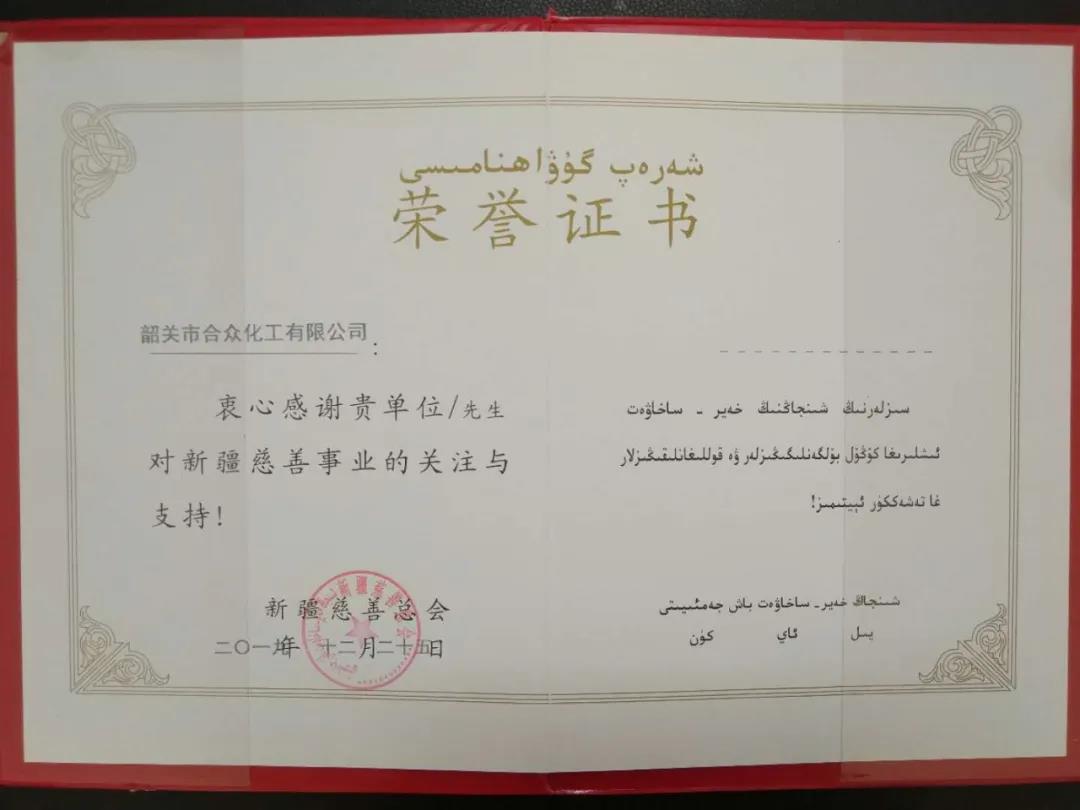 شەرەپ گۇۋاھنامىسى
荣誉证书
韶关市合众化工有限公司：
衷心感谢贵单位/先生
对新疆慈善事业的关注与
支持!
新疆慈善总会
二〇一 年 十二月二十五日
سىزلەرنىڭ شىنجاڭنىڭ خەير - ساخاۋەت
ئىشلىرىغا كۆڭۈل بۆلگەنلىكىڭىزلەر ۋە قوللىغانلىقىڭىزلار
غا تەشەككۈر ئېيتىمىز!
شىنجاڭ خەير - ساخاۋەت باش جەمئىيىتى
يىل ئاي كۈن